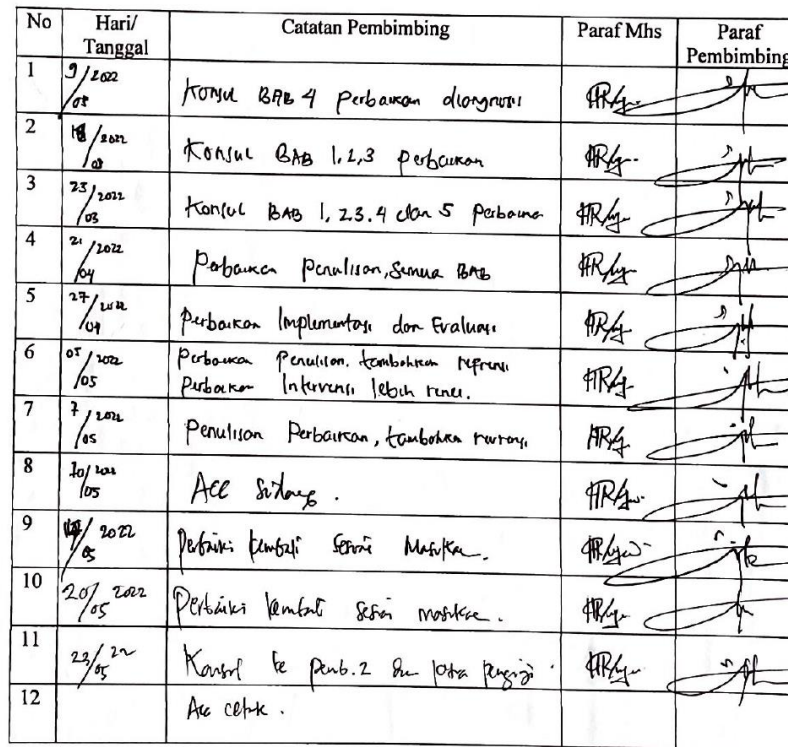 No Hari/ Tanggal Catatan Pembimbing Paraf Mhs Paraf Pembimbing
1 9/2022 Konsul BAB 4 Perbaikan diangnosis
2 /2022 Konsul BAB 1,2,3 Perbaikan
3 23/2022 03 Konsul BAB 1,23.4 dan 5 Perbaikan
4 21/2022 04 Perbaikan Penulisan, Semua BAB
5 27/2022 04 Perbaikan Implementasi dan Evaluasi
6 05/2022 05 Perbaikan Penulisan. tambahkan refrensi
Perbaikan Intervensi lebih rinci.
7 7/2022 05 Penulisan Perbaikan, tambahkan
8 10/2022 05 Acc Sidang.
9 /2022 05 Perbaiki kembali sesuai Masukan.
10 20/05 2022 Perbaiki kembali sesuai masukan.
11 23/05 22 Konsul ke pemb. 2 dan para penguji.
12 Acc cetak.